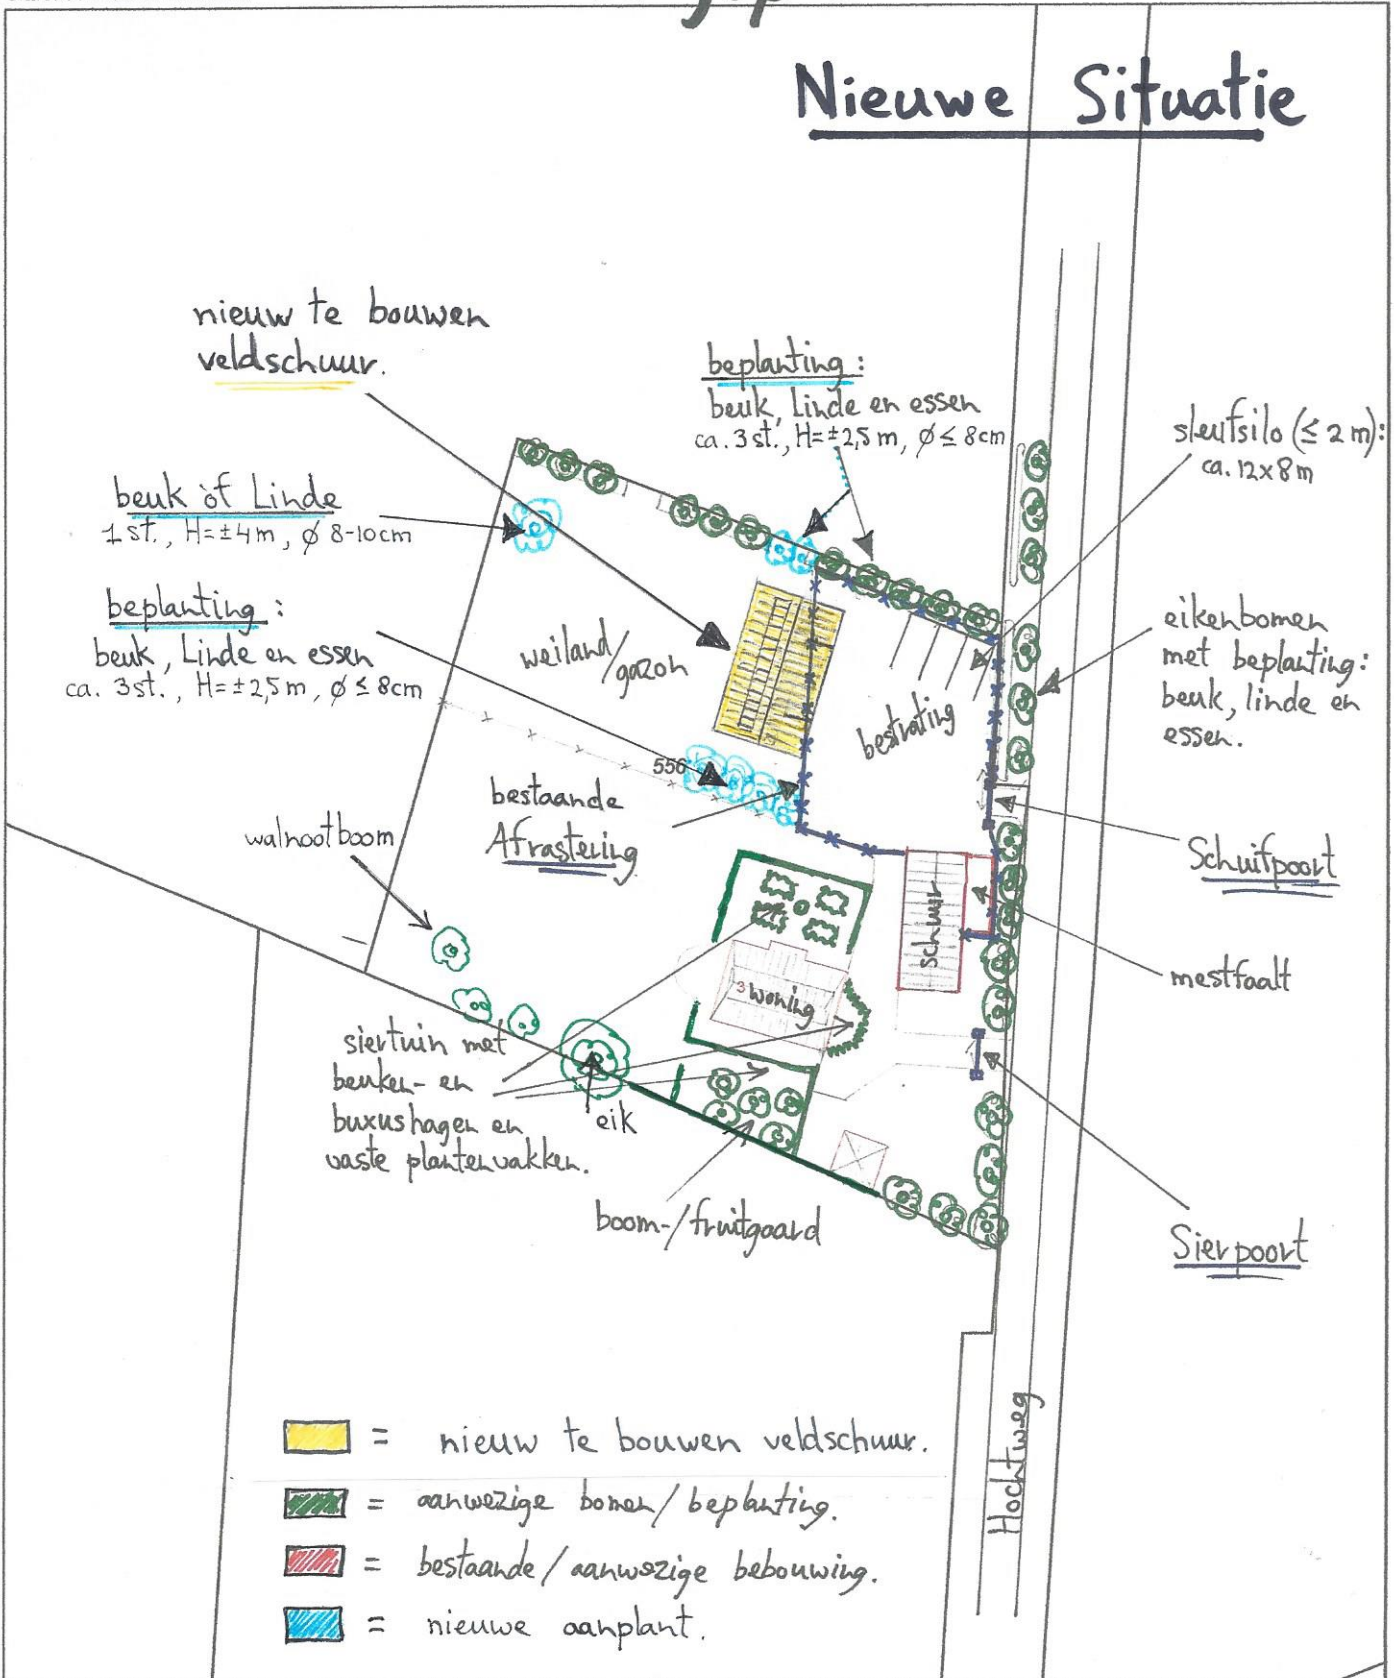 Nieuwe Situatie
nieuw te bouwen
veldschuur.
beplanting:
beuk, Linde en essen
ca. 3 st., H=±2,5 m, ø ≤ 8cm
sleufsilo (≤ 2 m):
ca. 12x8 m
beuk òf Linde
1 st., H=±4m, ø 8-10cm
beplanting:
beuk, Linde en essen
ca. 3st., H=±2,5m, ø ≤ 8cm
weiland/
gazon
bestrating
eikenbomen
met beplanting:
beuk, linde en
essen.
556
bestaande
Afrastering
walnootboom
Schuifpoort
schuur
mestfaalt
3 woning
siertuin met
beuken- en
buxushagen en
vaste plantenvakken.
eik
boom-/fruitgaard
Sierpoort
Hochtweg
= nieuw te bouwen veldschuur.
= aanwezige bomen/beplanting.
= bestaande/aanwezige bebouwing.
= nieuwe aanplant.